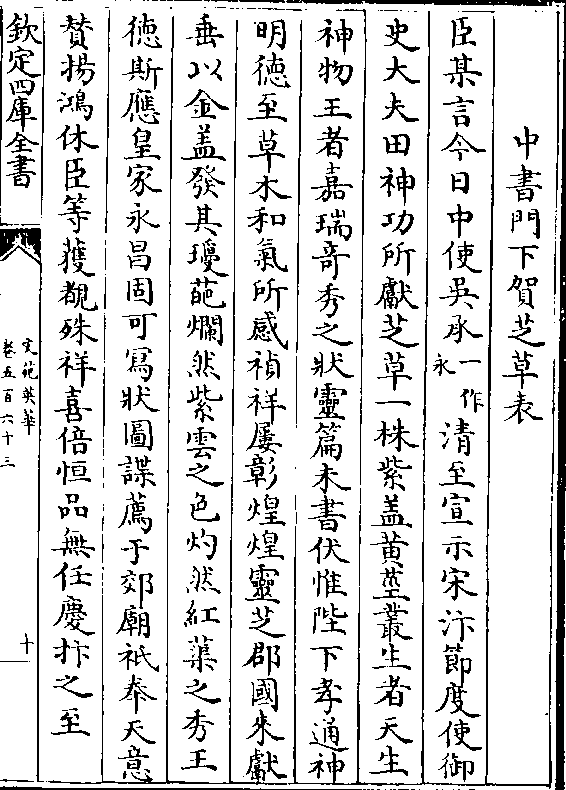 中書門下賀芝草表
臣某言今日中使吳承一作永清至宣示宋汴節度使御
史大夫田神功所獻芝草一株紫盖黄莖叢生者天生
神物王者嘉瑞竒秀之狀靈篇未書伏惟陛下孝通神
明德至草木和氣所感禎祥屢彰煌煌靈芝郡國來獻
垂以金盖發其瓊葩爛然紫雲之色灼然紅蕖之秀王
徳斯應皇家永昌固可寫狀圖諜薦于郊廟祇奉天意
賛揚鴻休臣等獲覩殊祥喜倍恒品無任慶抃之至
欽定四庫全書
文苑英華
卷五百六十三
十